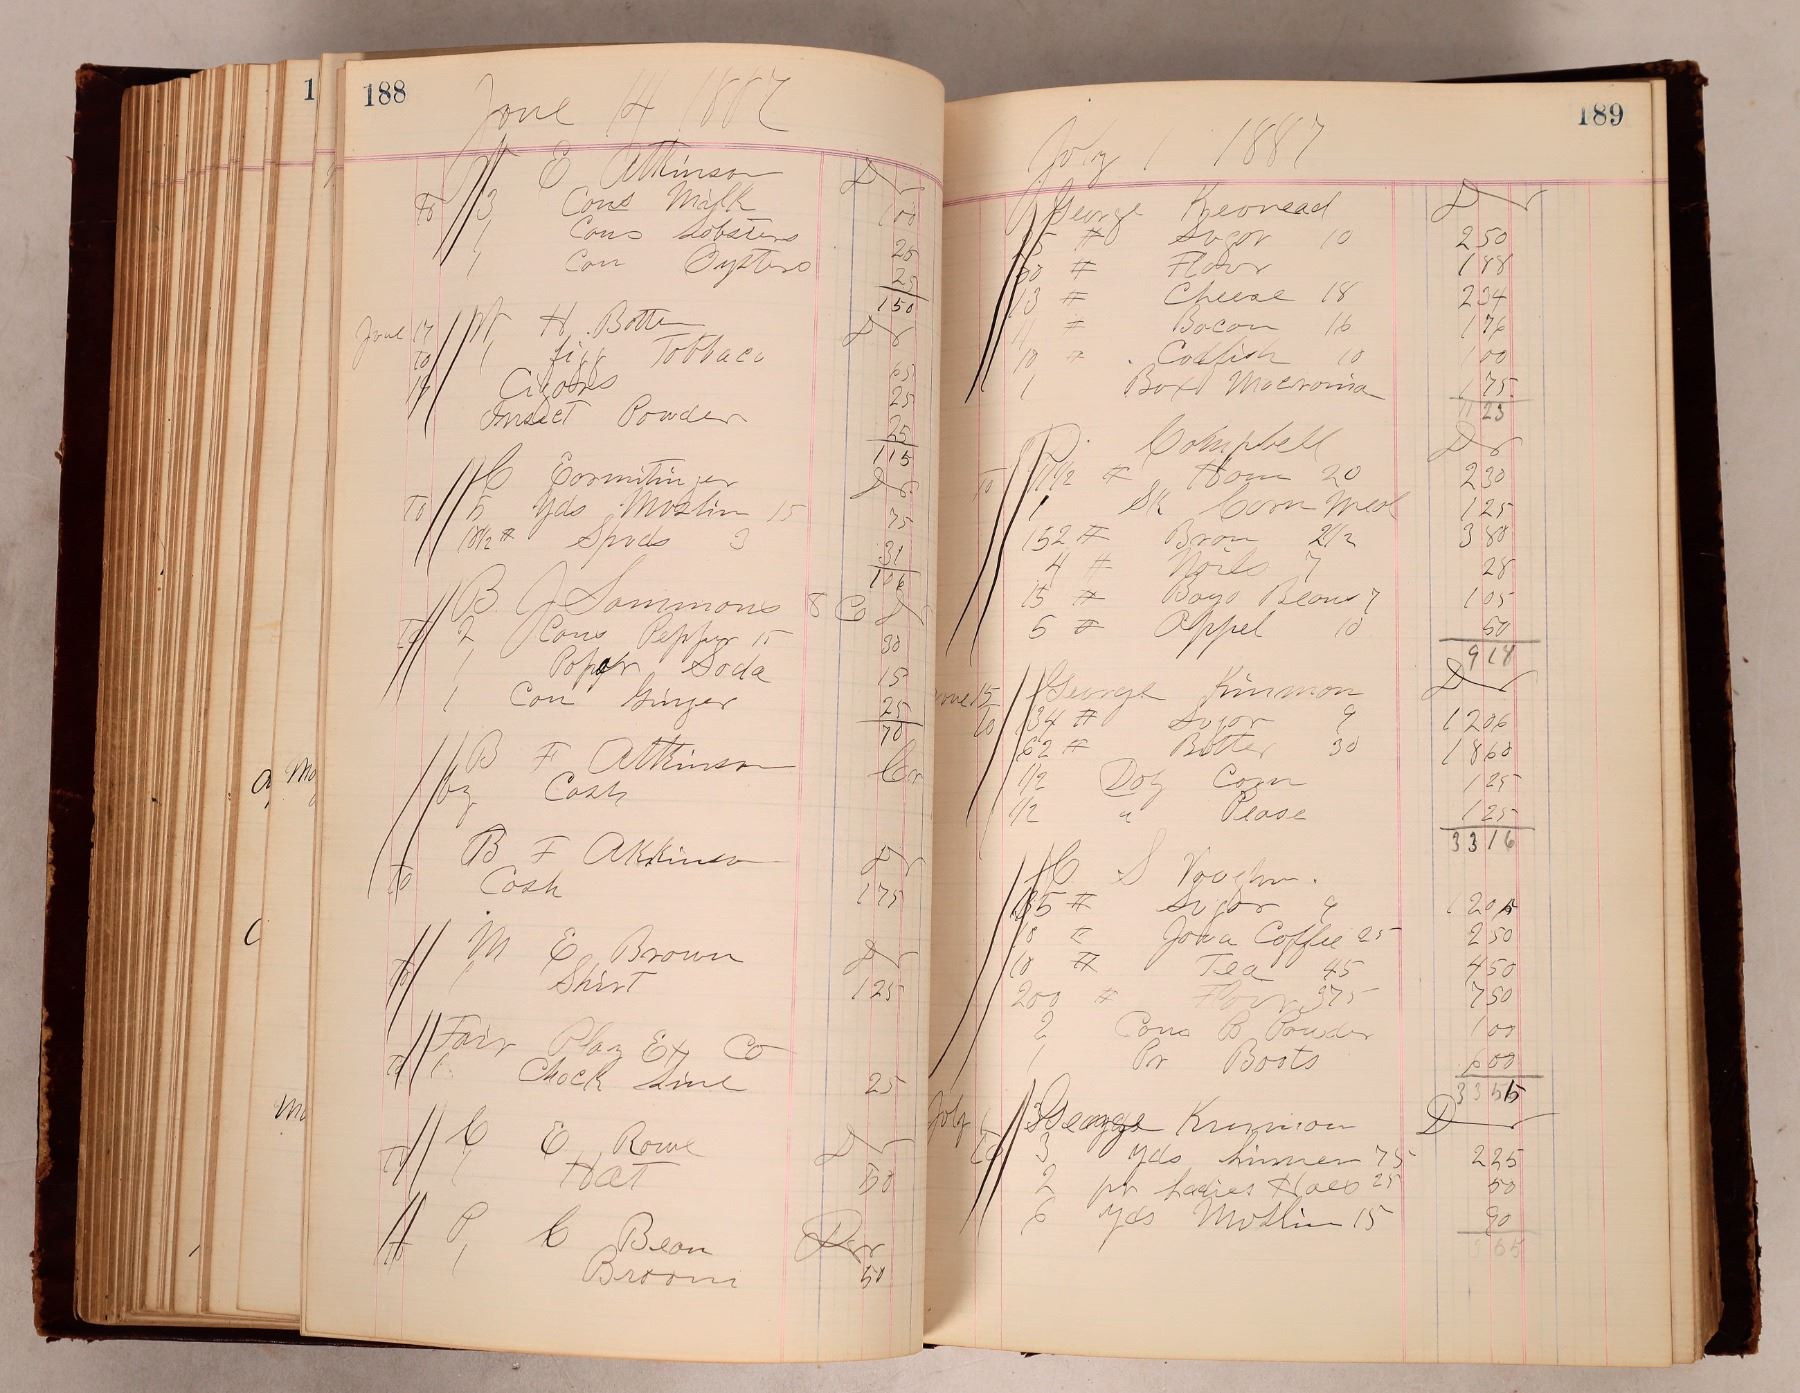 188
June 14 1887
E Atkinson Dr
To 3 Cans Milk 100
1 Cans Lobsters 25
1 Can Oysters 25
150
June 17 H. Dr
To 1 Tobbaco 65
Cigars 25
Insect Powder 25
115
C Dr
To 5 Yds Muslin 15 75
10 1/2 # Spuds 3 31
106
B J Sammons & Co
To 2 Cans Pepper 15 30
1 Paper Soda 15
1 Can Ginger 25
70
B F Atkinson Cr
by Cash
B F Atkinson Dr
To Cash 175
M E Brown Dr
To 1 Shirt 125
Fair Play Ex Co
To 1 Chock Line 25
C E Rowe Dr
To 1 Hat 50
P C Bean Dr
To 1 Broom 50
189
July 1 1887
George Dr
# Sugar 10 250
50 # Flour 188
13 # Cheese 18 234
11 # Bacon 16 176
10 # Codfish 10 100
1 Box Macronia 175
11 23
Campbell Dr
To 11 1/2 # Ham 20 230
1 Sk Corn Meal 125
152 # Bran 2 1/2 380
4 # Nails 7 28
15 # Bayo Beans 7 105
5 # Appel 10 50
918
June 15 George Kinmon Dr
To 134 # Sugar 9 1206
62 # Butter 30 1860
1/2 Doz Corn 125
1/2 " Pease 125
3316
C S Vaughn.
135 # Sugar 9 120
10 # Java Coffee 25 250
10 # Tea 45 450
200 # Flour 375 750
2 Cans B Powder 100
1 Pr Boots 600
33
July George Kinmon D
To 3 yds Linnen 75 225
2 pr Ladies Hoes 25 50
6 yds Muslin 15 90
365